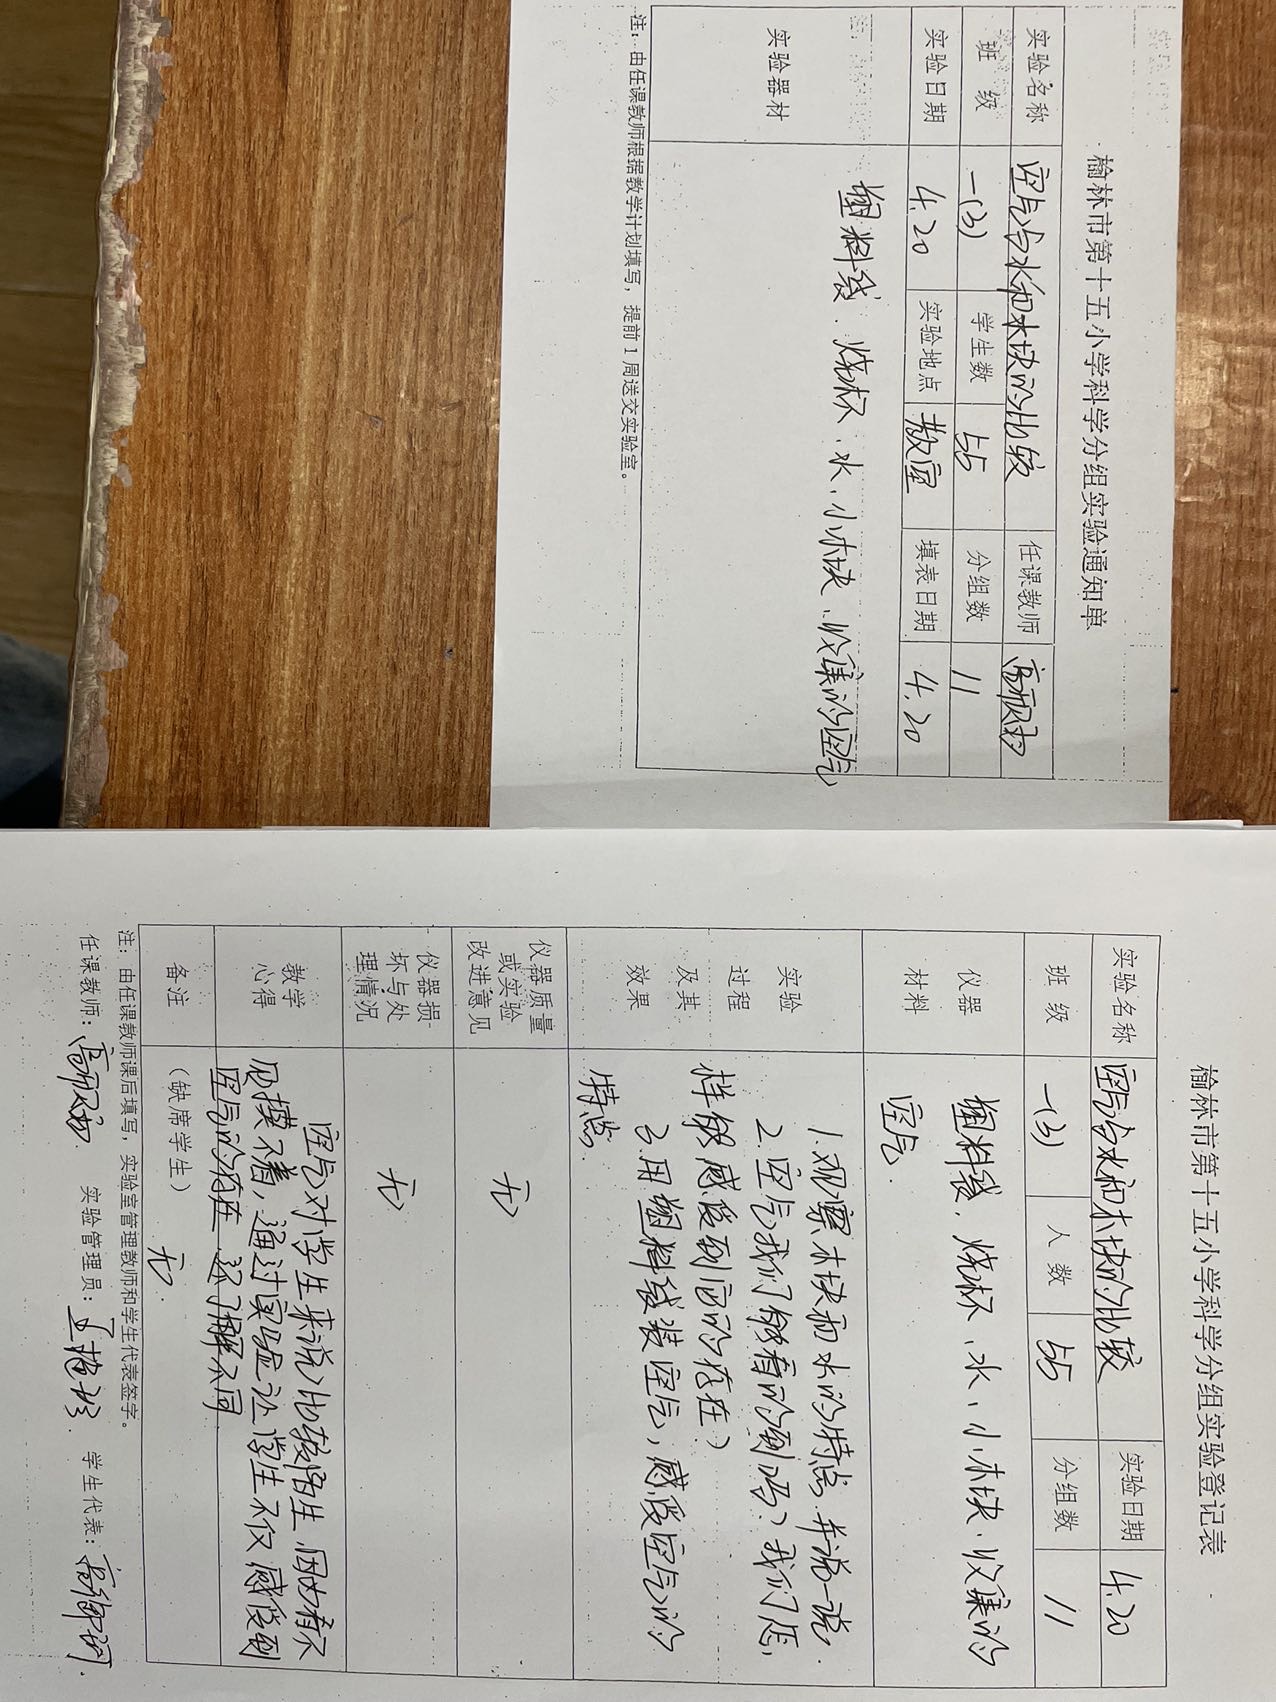 榆林市第十五小学科学分组实验通知单
实验名称 空气与水和木块的比较 任课教师
班 级 一(3) 学生数 55 分组数 11
实验日期 4.20 实验地点 教室 填表日期 4.20
实验器材 塑料袋、烧杯、水、小木块、收集的空气
注：由任课教师根据教学计划填写，提前1周送交实验室。
榆林市第十五小学科学分组实验登记表
实验名称 空气与水和木块的比较 实验日期 4.20
班 级 一(3) 人数 55 分组数 11
仪器
材料
塑料袋、烧杯、水、小木块、收集的
空气.
实验
过程
及其
效果
1.观察木块和水的特点并说一说.
2.空气我们能看的到吗？我们怎
样能感受到它的存在？
3.用塑料袋装空气，感受空气的
特点.
仪器质量
或实验
改进意见
无
仪器损
坏与处
理情况
无
教学
心得
空气对学生来说比较陌生，因为看不
见摸不着，通过实验让学生不仅感受到
空气的存在，还了解不同
备注 （缺席学生） 无.
注：由任课教师课后填写，实验室管理教师和学生代表签字。
任课教师： 实验管理员： 学生代表：